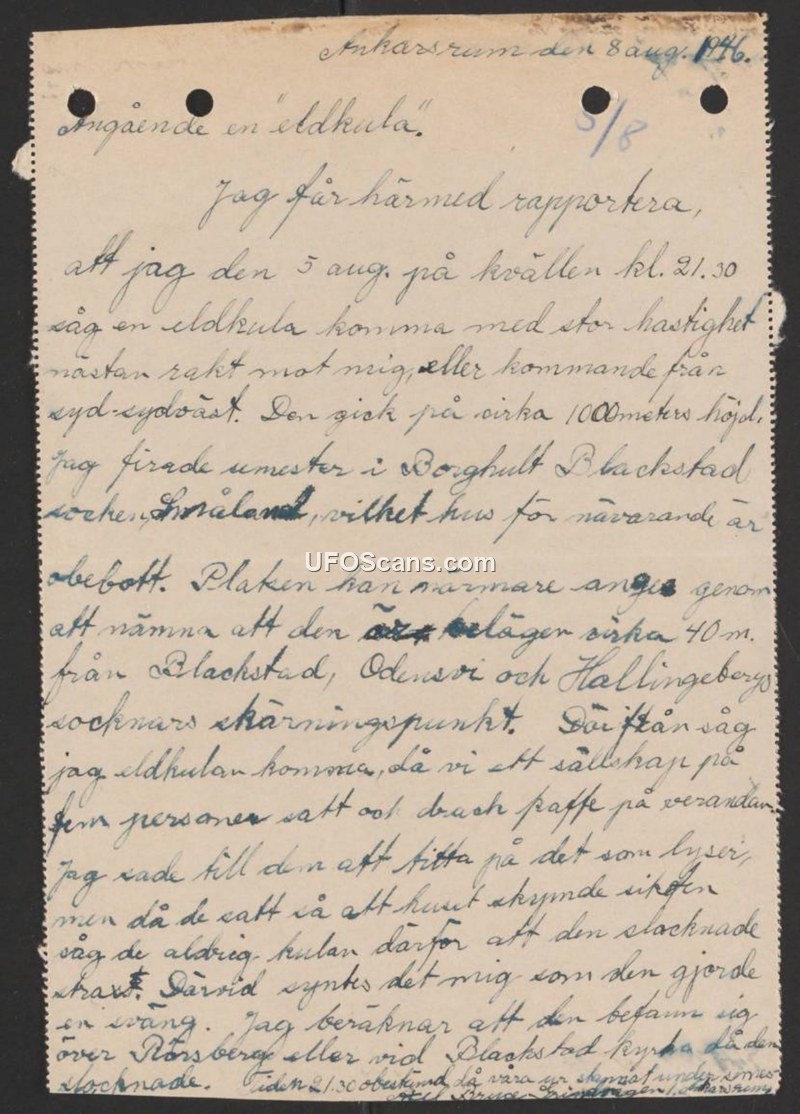 Ankarsrum den 8 aug. 1946.
Angående en "eldkula".
5/8
Jag får härmed rapportera,
att jag den 5 aug. på kvällen kl. 21.30
såg en eldkula komma med stor hastighet
nästan rakt mot mig, eller kommande från
syd-sydväst. Den gick på cirka 1000 meters höjd.
Jag firade semester i Borghult Blackstad
socken, Småland, vilket hus för närvarande är
UFOScans.com
obebott. Platsen kan närmare anges genom
att nämna att den är belägen cirka 40 m.
från Blackstad, Odensvi och Hallingebergs
socknars skärningspunkt. Därifrån såg
jag eldkulan komma, då vi ett sällskap på
fem personer satt och drack kaffe på verandan.
Jag sade till dem att titta på det som lyser,
men då de satt så att huset skymde sikten
såg de aldrig kulan därför att den slocknade
straxt. Därvid syntes det mig som den gjorde
en sväng. Jag beräknar att den befann sig
över Rörsberg eller vid Blackstad kyrka då den
slocknade. Tiden 21.30 obestämd, då våra ur stannat under semes-
Axel Ankarsrum